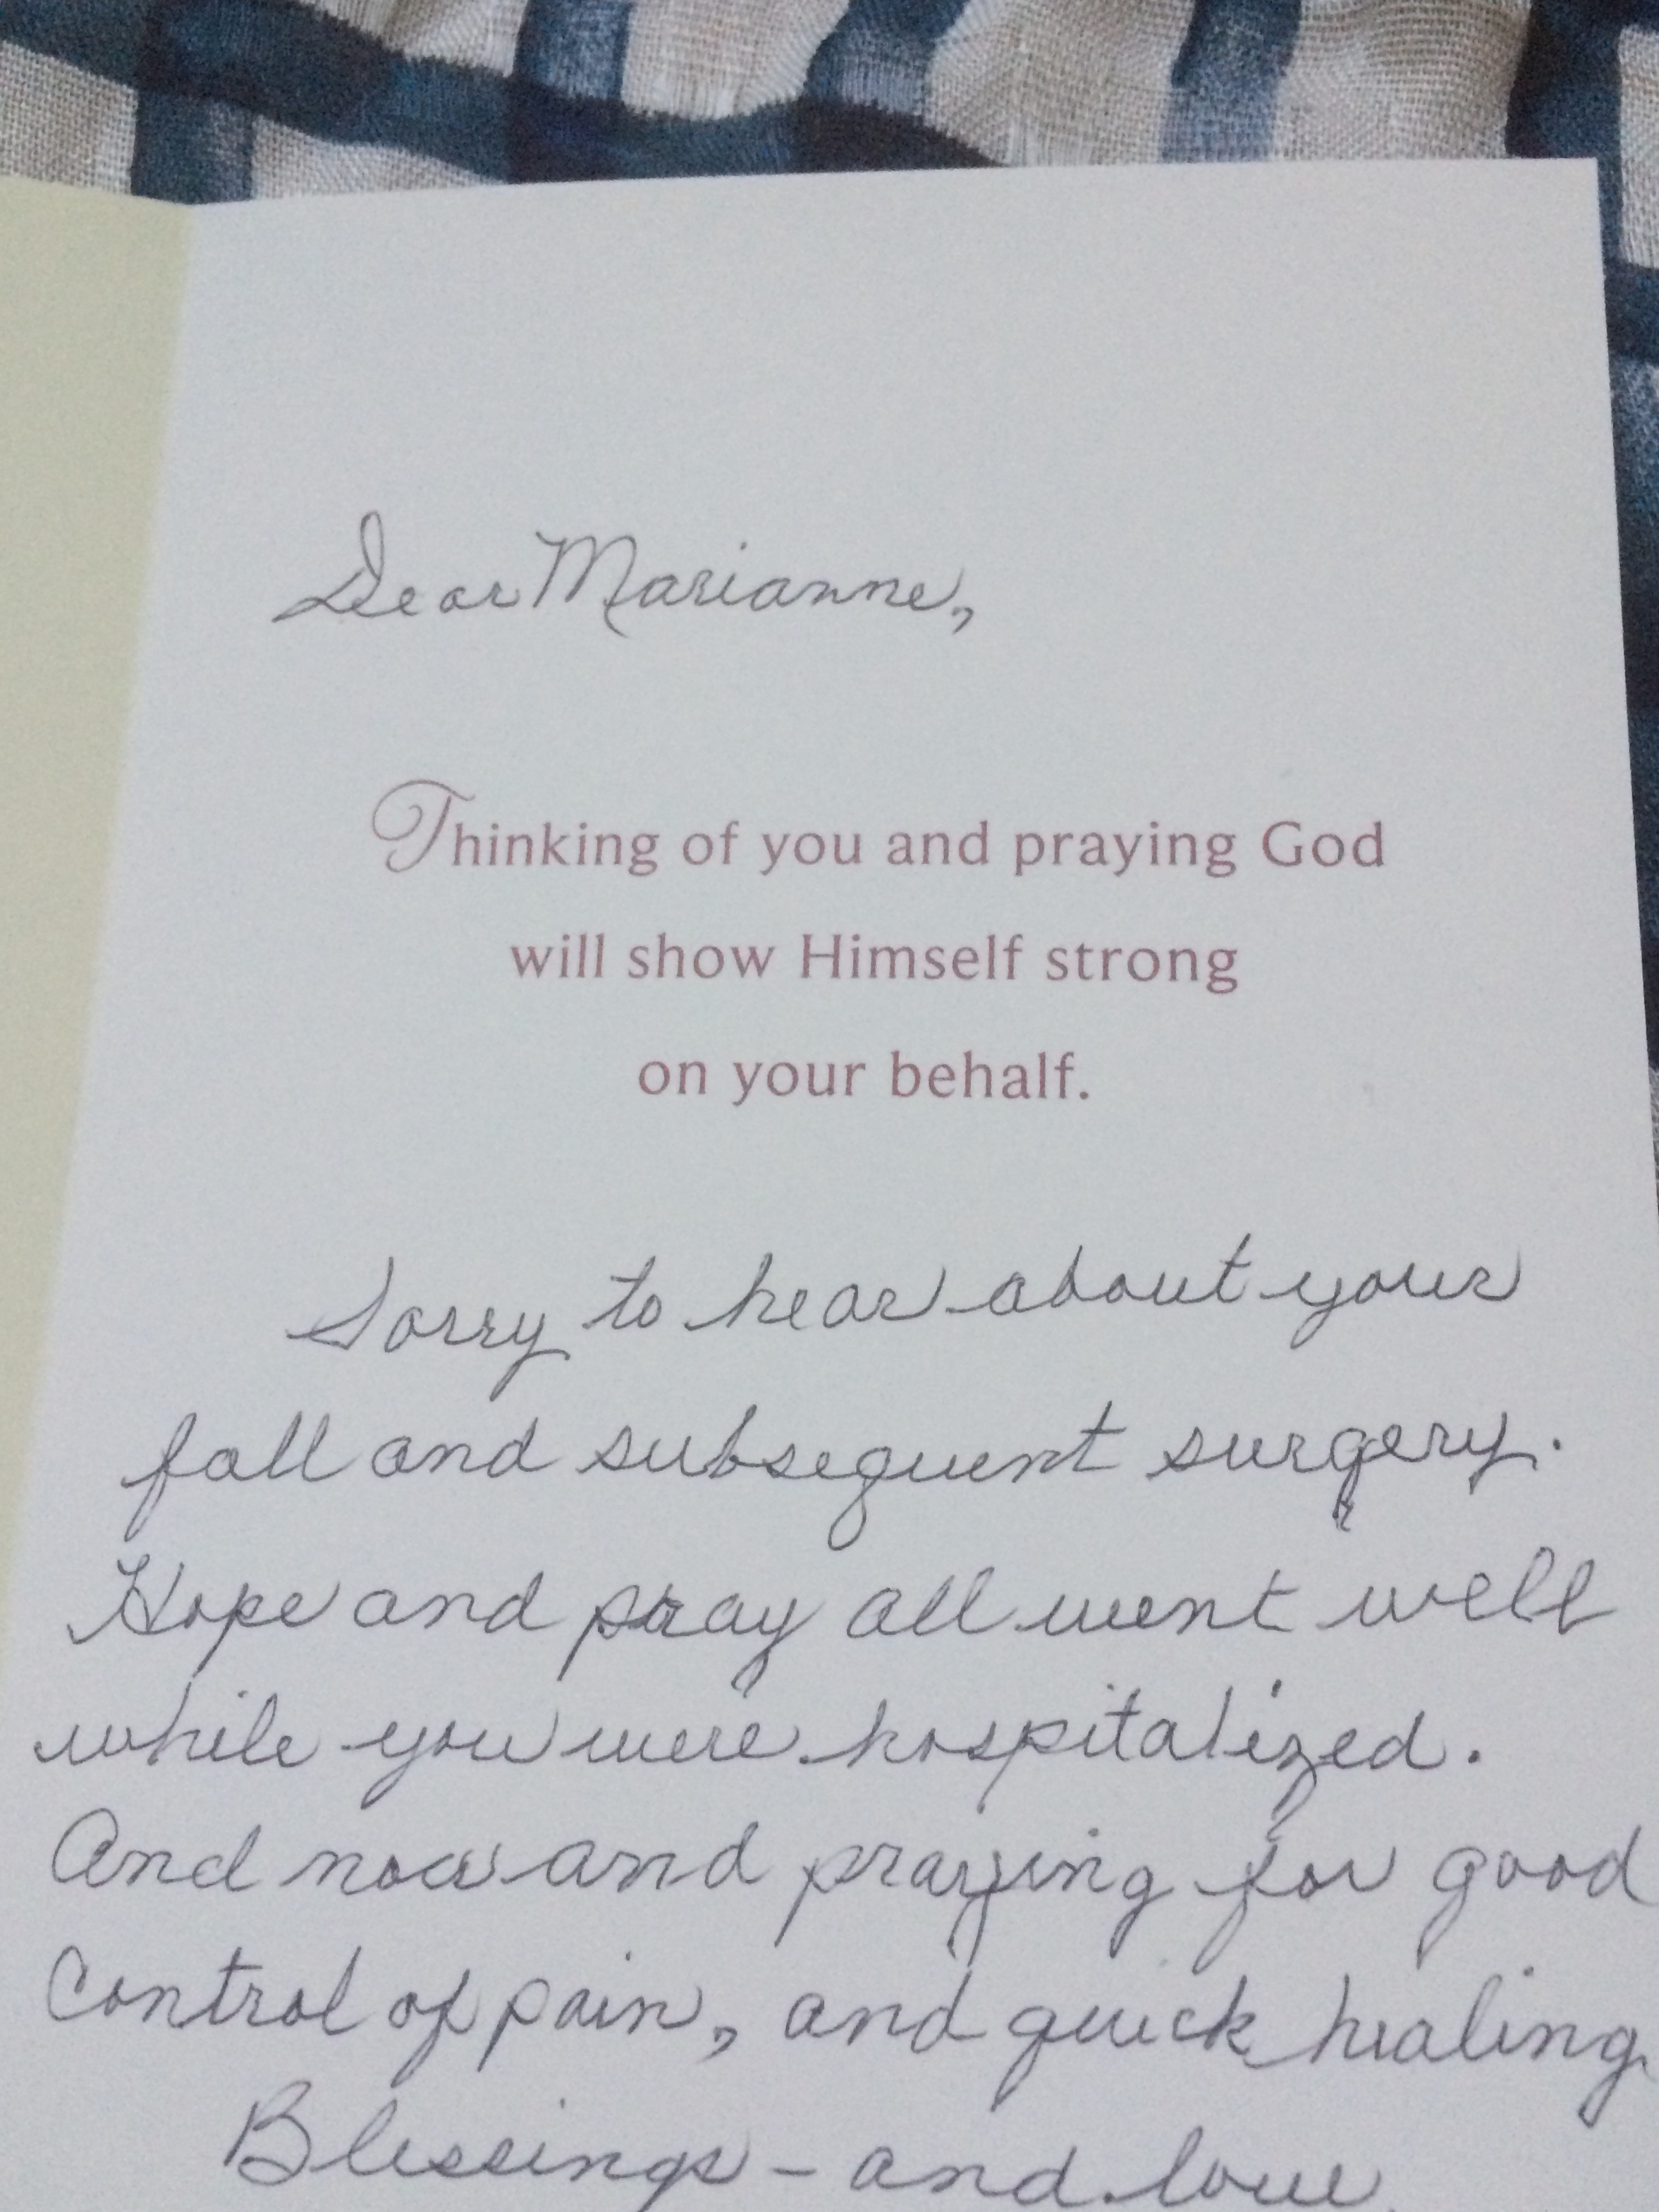 Dear Marianne,
Thinking of you and praying God
will show Himself strong
on your behalf.
Sorry to hear about your
fall and subsequent surgery.
Hope and pray all went well
while you were hospitalized.
And now and praying for good
control of pain, and quick healing
Blessings - and love